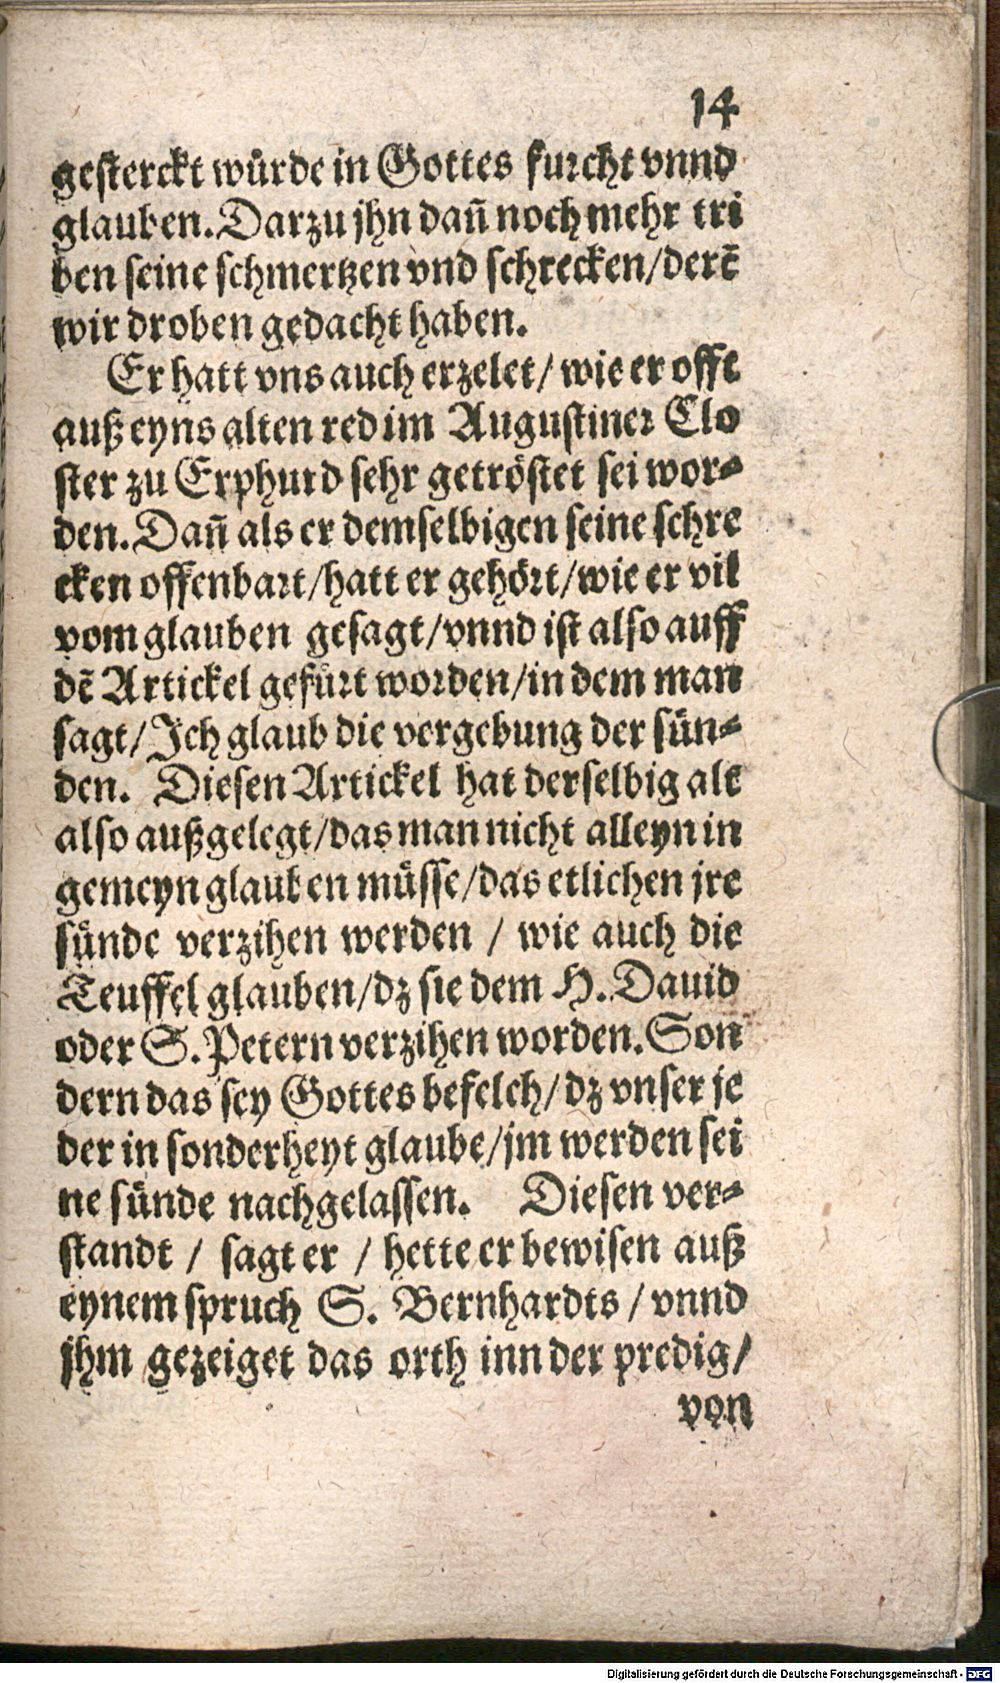 14
gesterckt würde in Gottes furcht vnnd
glauben. Darzu jhn dañ noch mehr tri
ben seine schmertzen vnd schrecken/derẽ
wir droben gedacht haben.
Er hatt vns auch erzelet/ wie er offt
auß eyns alten red im Augustiner Clo
ster zu Erphurd sehr getröstet sei wor⸗
den. Dañ als er demselbigen seine schre
cken offenbart/hatt er gehört/wie er vil
vom glauben gesagt/vnnd ist also auff
dẽ Artickel gefürt worden/in dem man
sagt/Jch glaub die vergebung der sün⸗
den. Diesen Artickel hat derselbig alt
also außgelegt/das man nicht alleyn in
gemeyn glauben müsse/das etlichen jre
sünde verzihen werden / wie auch die
Teuffel glauben/dz sie dem H. Dauid
oder S. Petern verzihen worden. Son
dern das sey Gottes befelch/ dz vnser je
der in sonderheyt glaube/jm werden sei
ne sünde nachgelassen. Diesen ver⸗
standt / sagt er / hette er bewisen auß
eynem spruch S. Bernhardts / vnnd
jhm gezeiget das orth inn der predig/
von
Digitalisierung gefördert durch die Deutsche Forschungsgemeinschaft - DFG